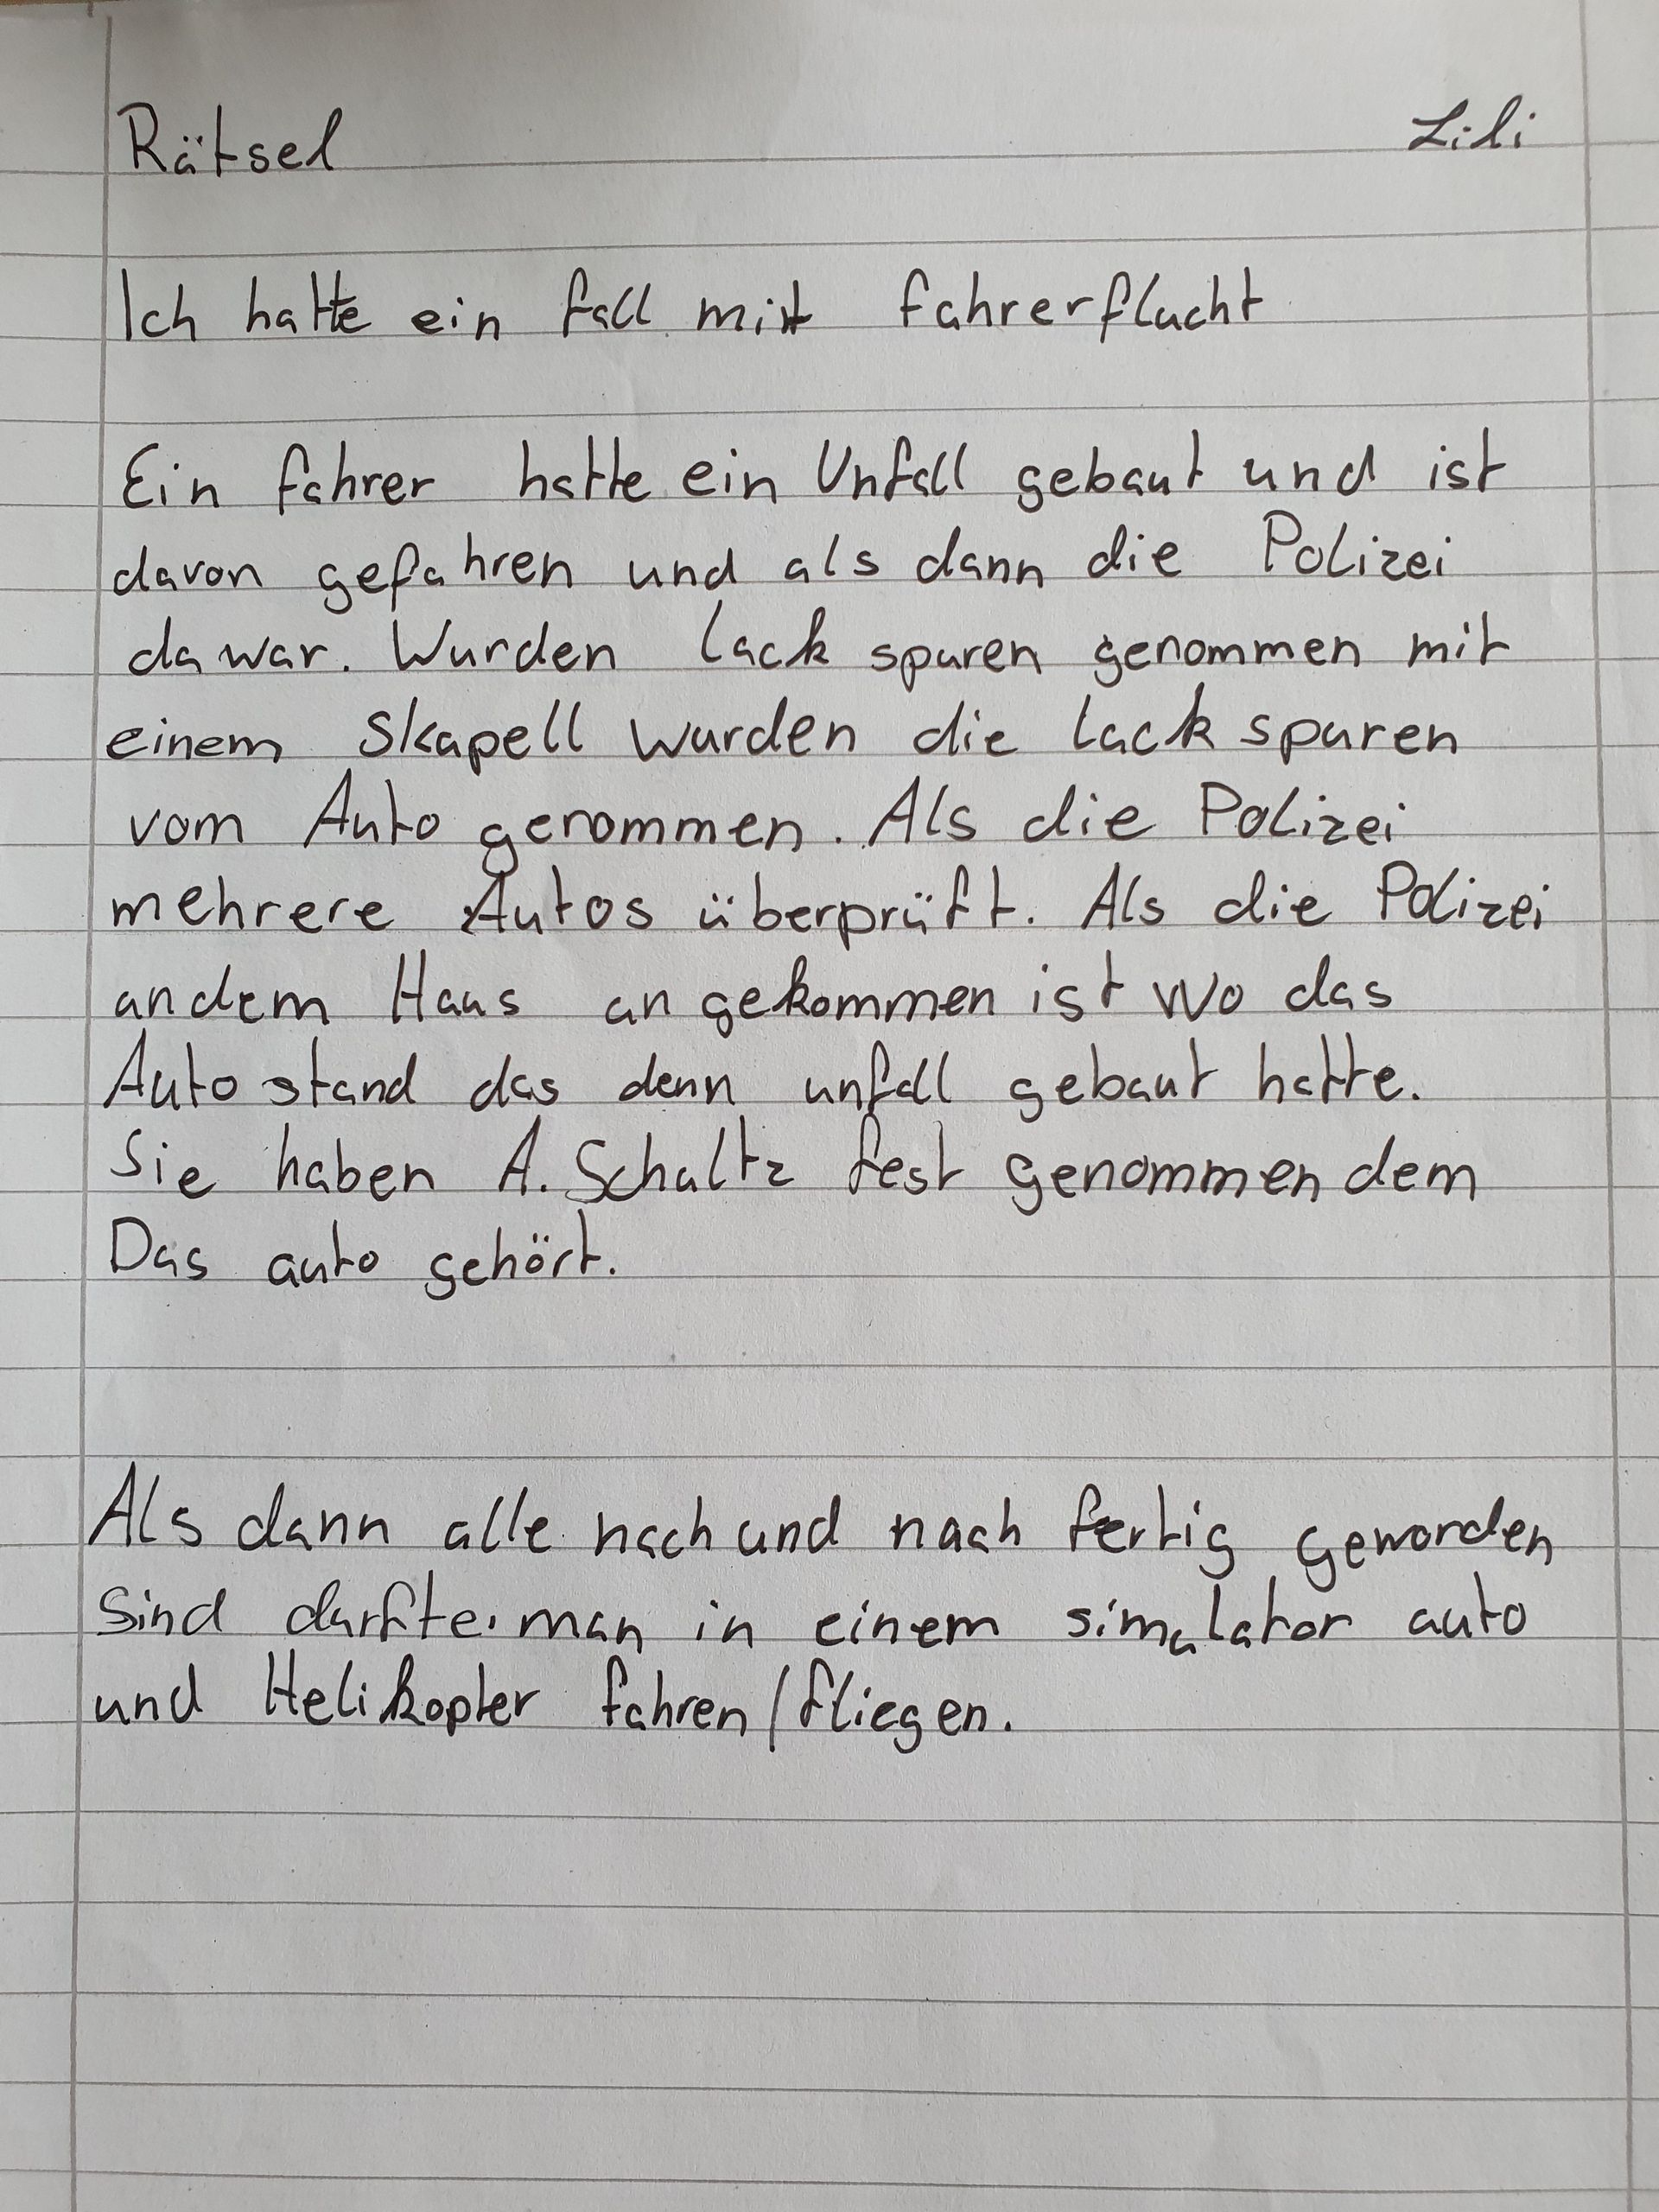 Rätsel Lili
Ich hatte ein fall mit fahrerflucht
Ein fahrer hatte ein Unfall gebaut und ist
davon gefahren und als dann die Polizei
da war. Wurden lack spuren genommen mit
einem Skapell wurden die lack spuren
vom Auto genommen. Als die Polizei
mehrere Autos überprüft. Als die Polizei
an dem Haus an gekommen ist wo das
Auto stand das denn unfall gebaut hatte.
Sie haben A. Schultz fest genommen dem
Das auto gehört.
Als dann alle nach und nach fertig geworden
Sind darfte man in einem simulator auto
und Helikopter fahren/fliegen.